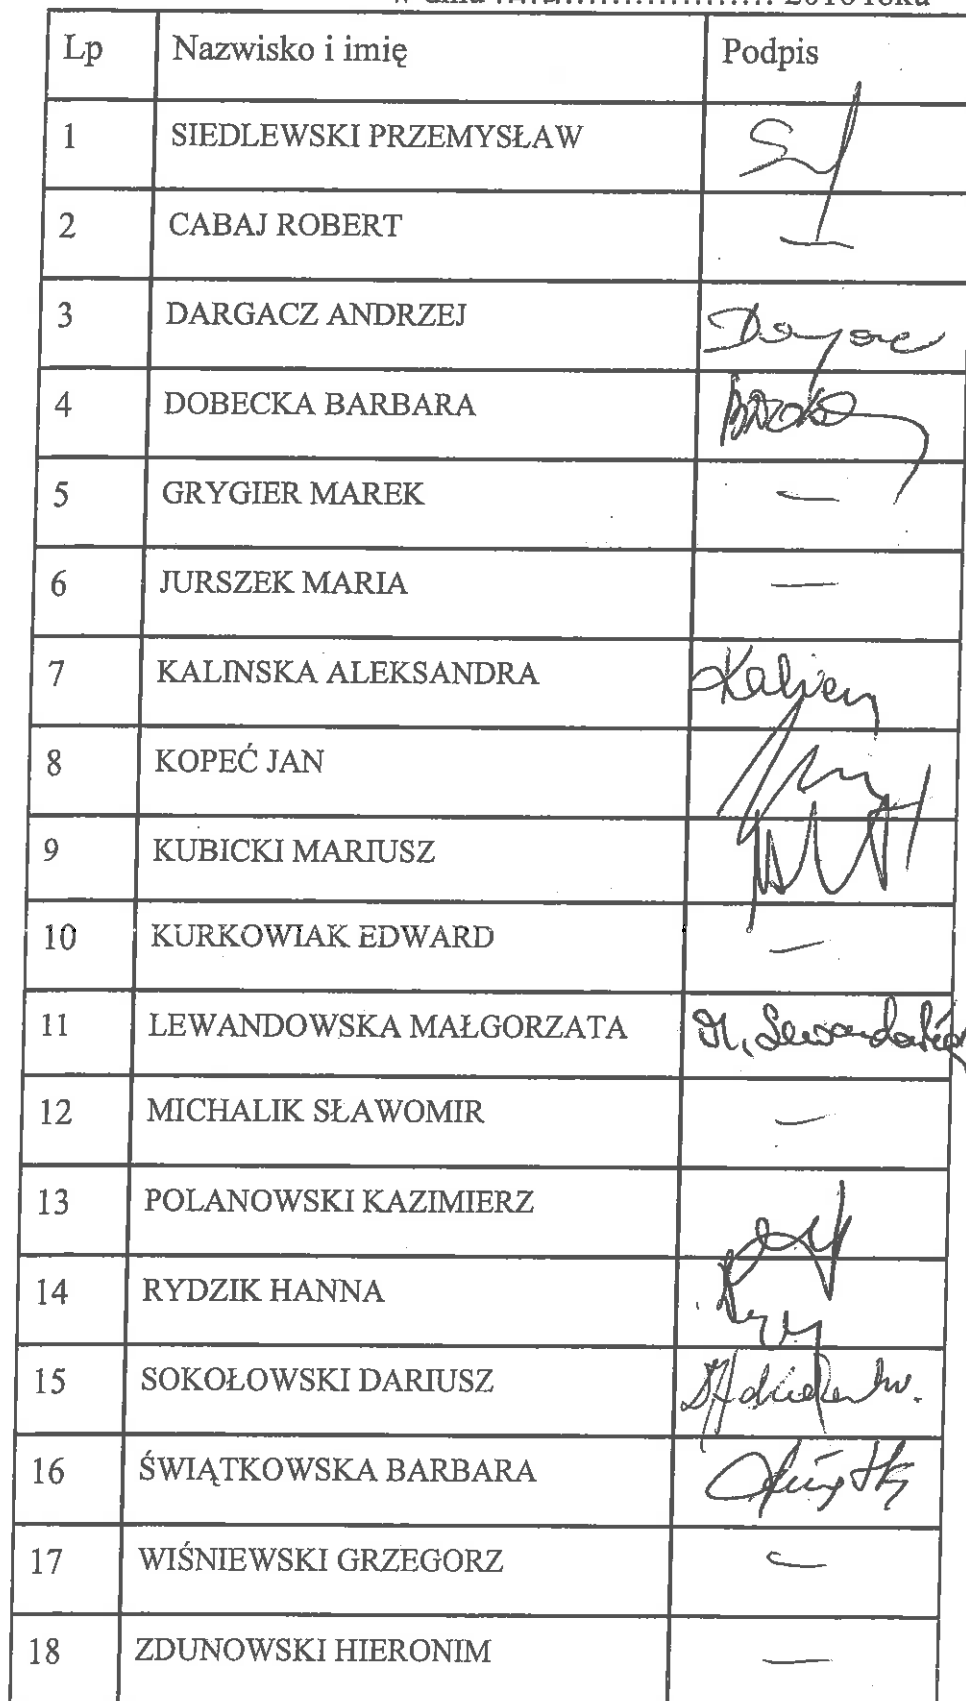 w dniu 2016 roku
Lp Nazwisko i imię Podpis
1 SIEDLEWSKI PRZEMYSŁAW
2 CABAJ ROBERT —
3 DARGACZ ANDRZEJ
4 DOBECKA BARBARA
5 GRYGIER MAREK —
6 JURSZEK MARIA —
7 KALINSKA ALEKSANDRA
8 KOPEĆ JAN
9 KUBICKI MARIUSZ
10 KURKOWIAK EDWARD —
11 LEWANDOWSKA MAŁGORZATA M. Lewandowska
12 MICHALIK SŁAWOMIR —
13 POLANOWSKI KAZIMIERZ
14 RYDZIK HANNA
15 SOKOŁOWSKI DARIUSZ
16 ŚWIĄTKOWSKA BARBARA
17 WIŚNIEWSKI GRZEGORZ —
18 ZDUNOWSKI HIERONIM —